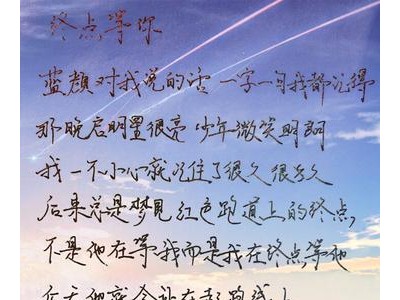 终点等你
蓝颜对我说的话 一字一句我都记得
那晚启明星很亮 少年微笑明朗
我一不小心就记住了很久很久
后来总是梦见红色跑道上的终点,
不是他在等我而是我在终点等他
他就会站在起跑线上